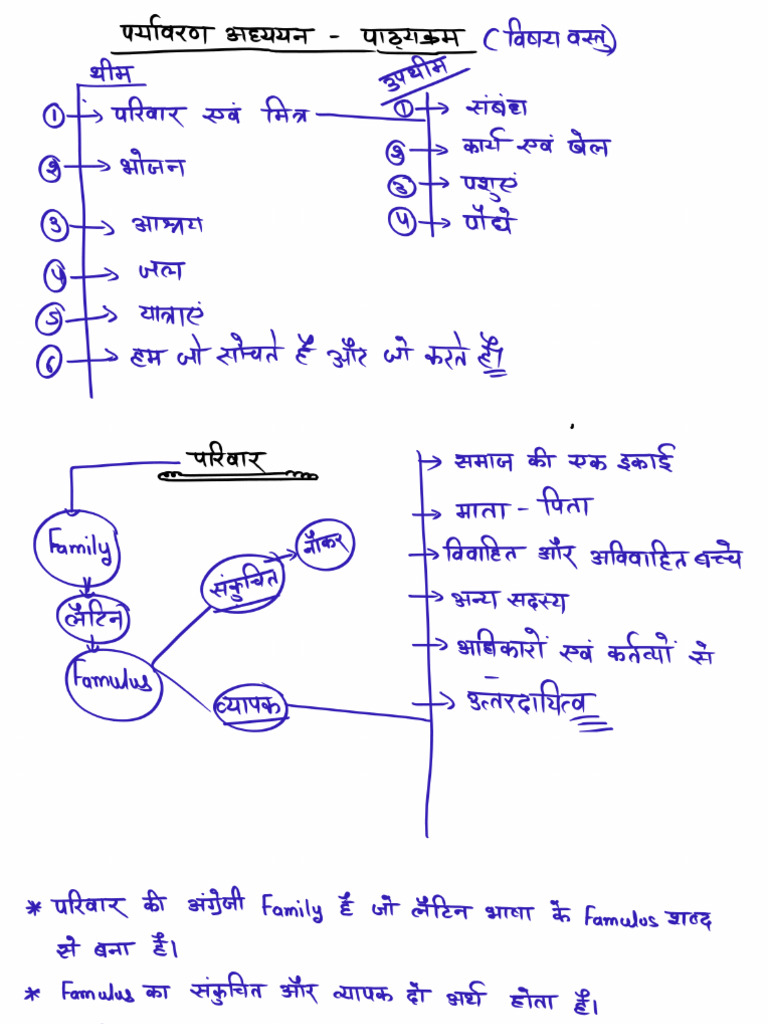 पर्यावरण अध्ययन - पाठ्यक्रम (विषय वस्तु)
थीम
उपथीम
① → परिवार एवं मित्र
① → संबंध
② → कार्य एवं खेल
② → भोजन
③ → पशुएं
③ → आश्रय
④ → पौधे
④ → जल
⑤ → यात्राएं
⑥ → हम जो सोचते हैं और जो करते हैं।
परिवार
→ समाज की एक इकाई
→ माता - पिता
Family
नौकर
→ विवाहित और अविवाहित बच्चे
संकुचित
→ अन्य सदस्य
लैटिन
→ अधिकारों एवं कर्तव्यों से
Famulus
व्यापक
→ उत्तरदायित्व
* परिवार की अंग्रेजी Family है जो लैटिन भाषा के Famulus शब्द
से बना है।
* Famulus का संकुचित और व्यापक दो अर्थ होता है।